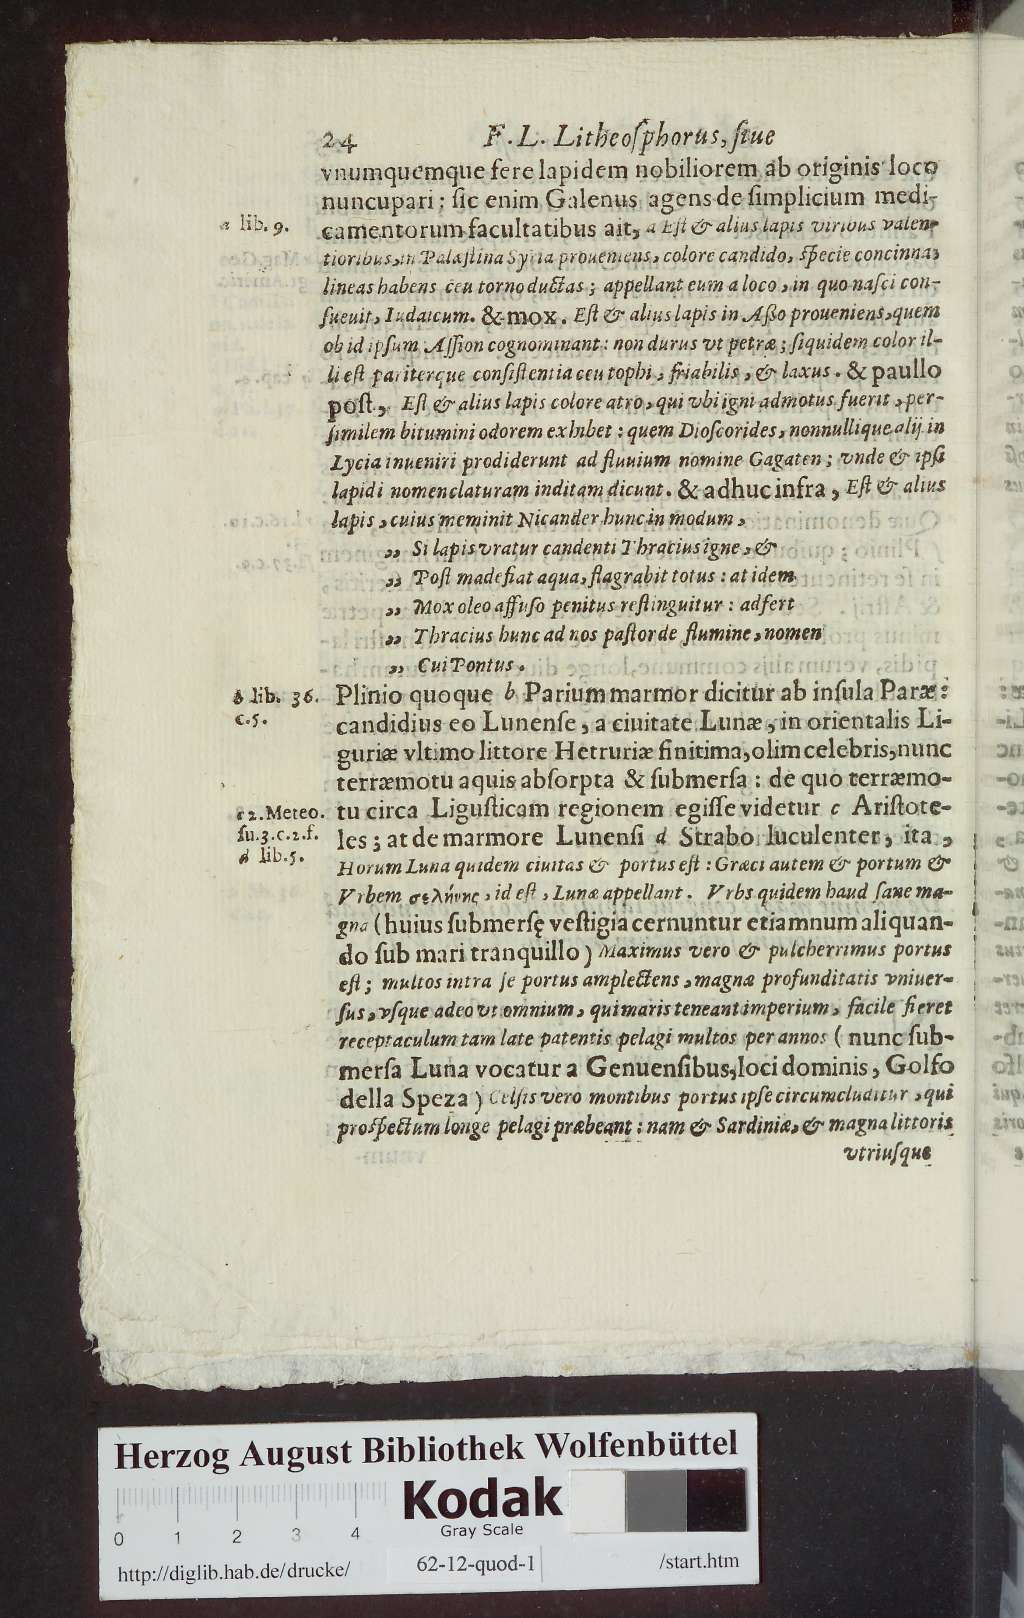 24 F. L. Litheoſphorus, ſiue
vnumquemque fere lapidem nobiliorem ab originis loco
nuncupari; ſic enim Galenus agens de ſimplicium medi-
a lib. 9.
camentorum facultatibus ait, a Eſt & alius lapis viribus valen-
tioribus, in Palæſtina Syria proueniens, colore candido, ſpecie concinna,
lineas habens ceu torno ductas; appellant eum a loco, in quo naſci con-
ſueuit, Iudaicum. & mox. Eſt & alius lapis in Aßo proueniens, quem
ob id ipſum Aſſion cognominant: non durus vt petræ; ſiquidem color il-
li eſt pariterque conſiſtentia ceu tophi, friabilis, & laxus. & paullo
poſt, Eſt & alius lapis colore atro, qui vbi igni admotus fuerit, per-
ſimilem bitumini odorem exhibet: quem Dioſcorides, nonnullique alij in
Lycia inueniri prodiderunt ad fluuium nomine Gagaten; vnde & ipſi
lapidi nomenclaturam inditam dicunt. & adhuc infra, Eſt & alius
lapis, cuius meminit Nicander hunc in modum,
„ Si lapis vratur candenti Thracius igne, &
„ Poſt madefiat aqua, flagrabit totus: at idem
„ Mox oleo affuſo penitus reſtinguitur: adfert
„ Thracius hunc ad nos paſtor de flumine, nomen
„ Cui Pontus.
b lib. 36.
c. 5.
Plinio quoque b Parium marmor dicitur ab inſula Paræ:
candidius eo Lunenſe, a ciuitate Lunæ, in orientalis Li-
guriæ vltimo littore Hetruriæ finitima, olim celebris, nunc
terræmotu aquis abſorpta & ſubmerſa: de quo terræmo-
c 2. Meteo.
ſu. 3. c. 2. f.
d lib. 5.
tu circa Liguſticam regionem egiſſe videtur c Ariſtote-
les; at de marmore Lunenſi d Strabo luculenter, ita,
Horum Luna quidem ciuitas & portus eſt: Græci autem & portum &
Vrbem σελήνης, id eſt, Lunæ appellant. Vrbs quidem haud ſane ma-
gna (huius ſubmerſę veſtigia cernuntur etiamnum aliquan-
do ſub mari tranquillo) Maximus vero & pulcherrimus portus
eſt; multos intra ſe portus amplectens, magnæ profunditatis vniuer-
ſus, vſque adeo vt omnium, qui maris teneant imperium, facile fieret
receptaculum tam late patentis pelagi multos per annos (nunc ſub-
merſa Luna vocatur a Genuenſibus, loci dominis, Golfo
della Speza) Celſis vero montibus portus ipſe circumcluditur, qui
proſpectum longe pelagi præbeant: nam & Sardiniæ, & magna littoris
vtriuſque
Herzog August Bibliothek Wolfenbüttel
Kodak
Gray Scale
0 1 2 3 4
http://diglib.hab.de/drucke/ 62-12-quod-1 /start.htm